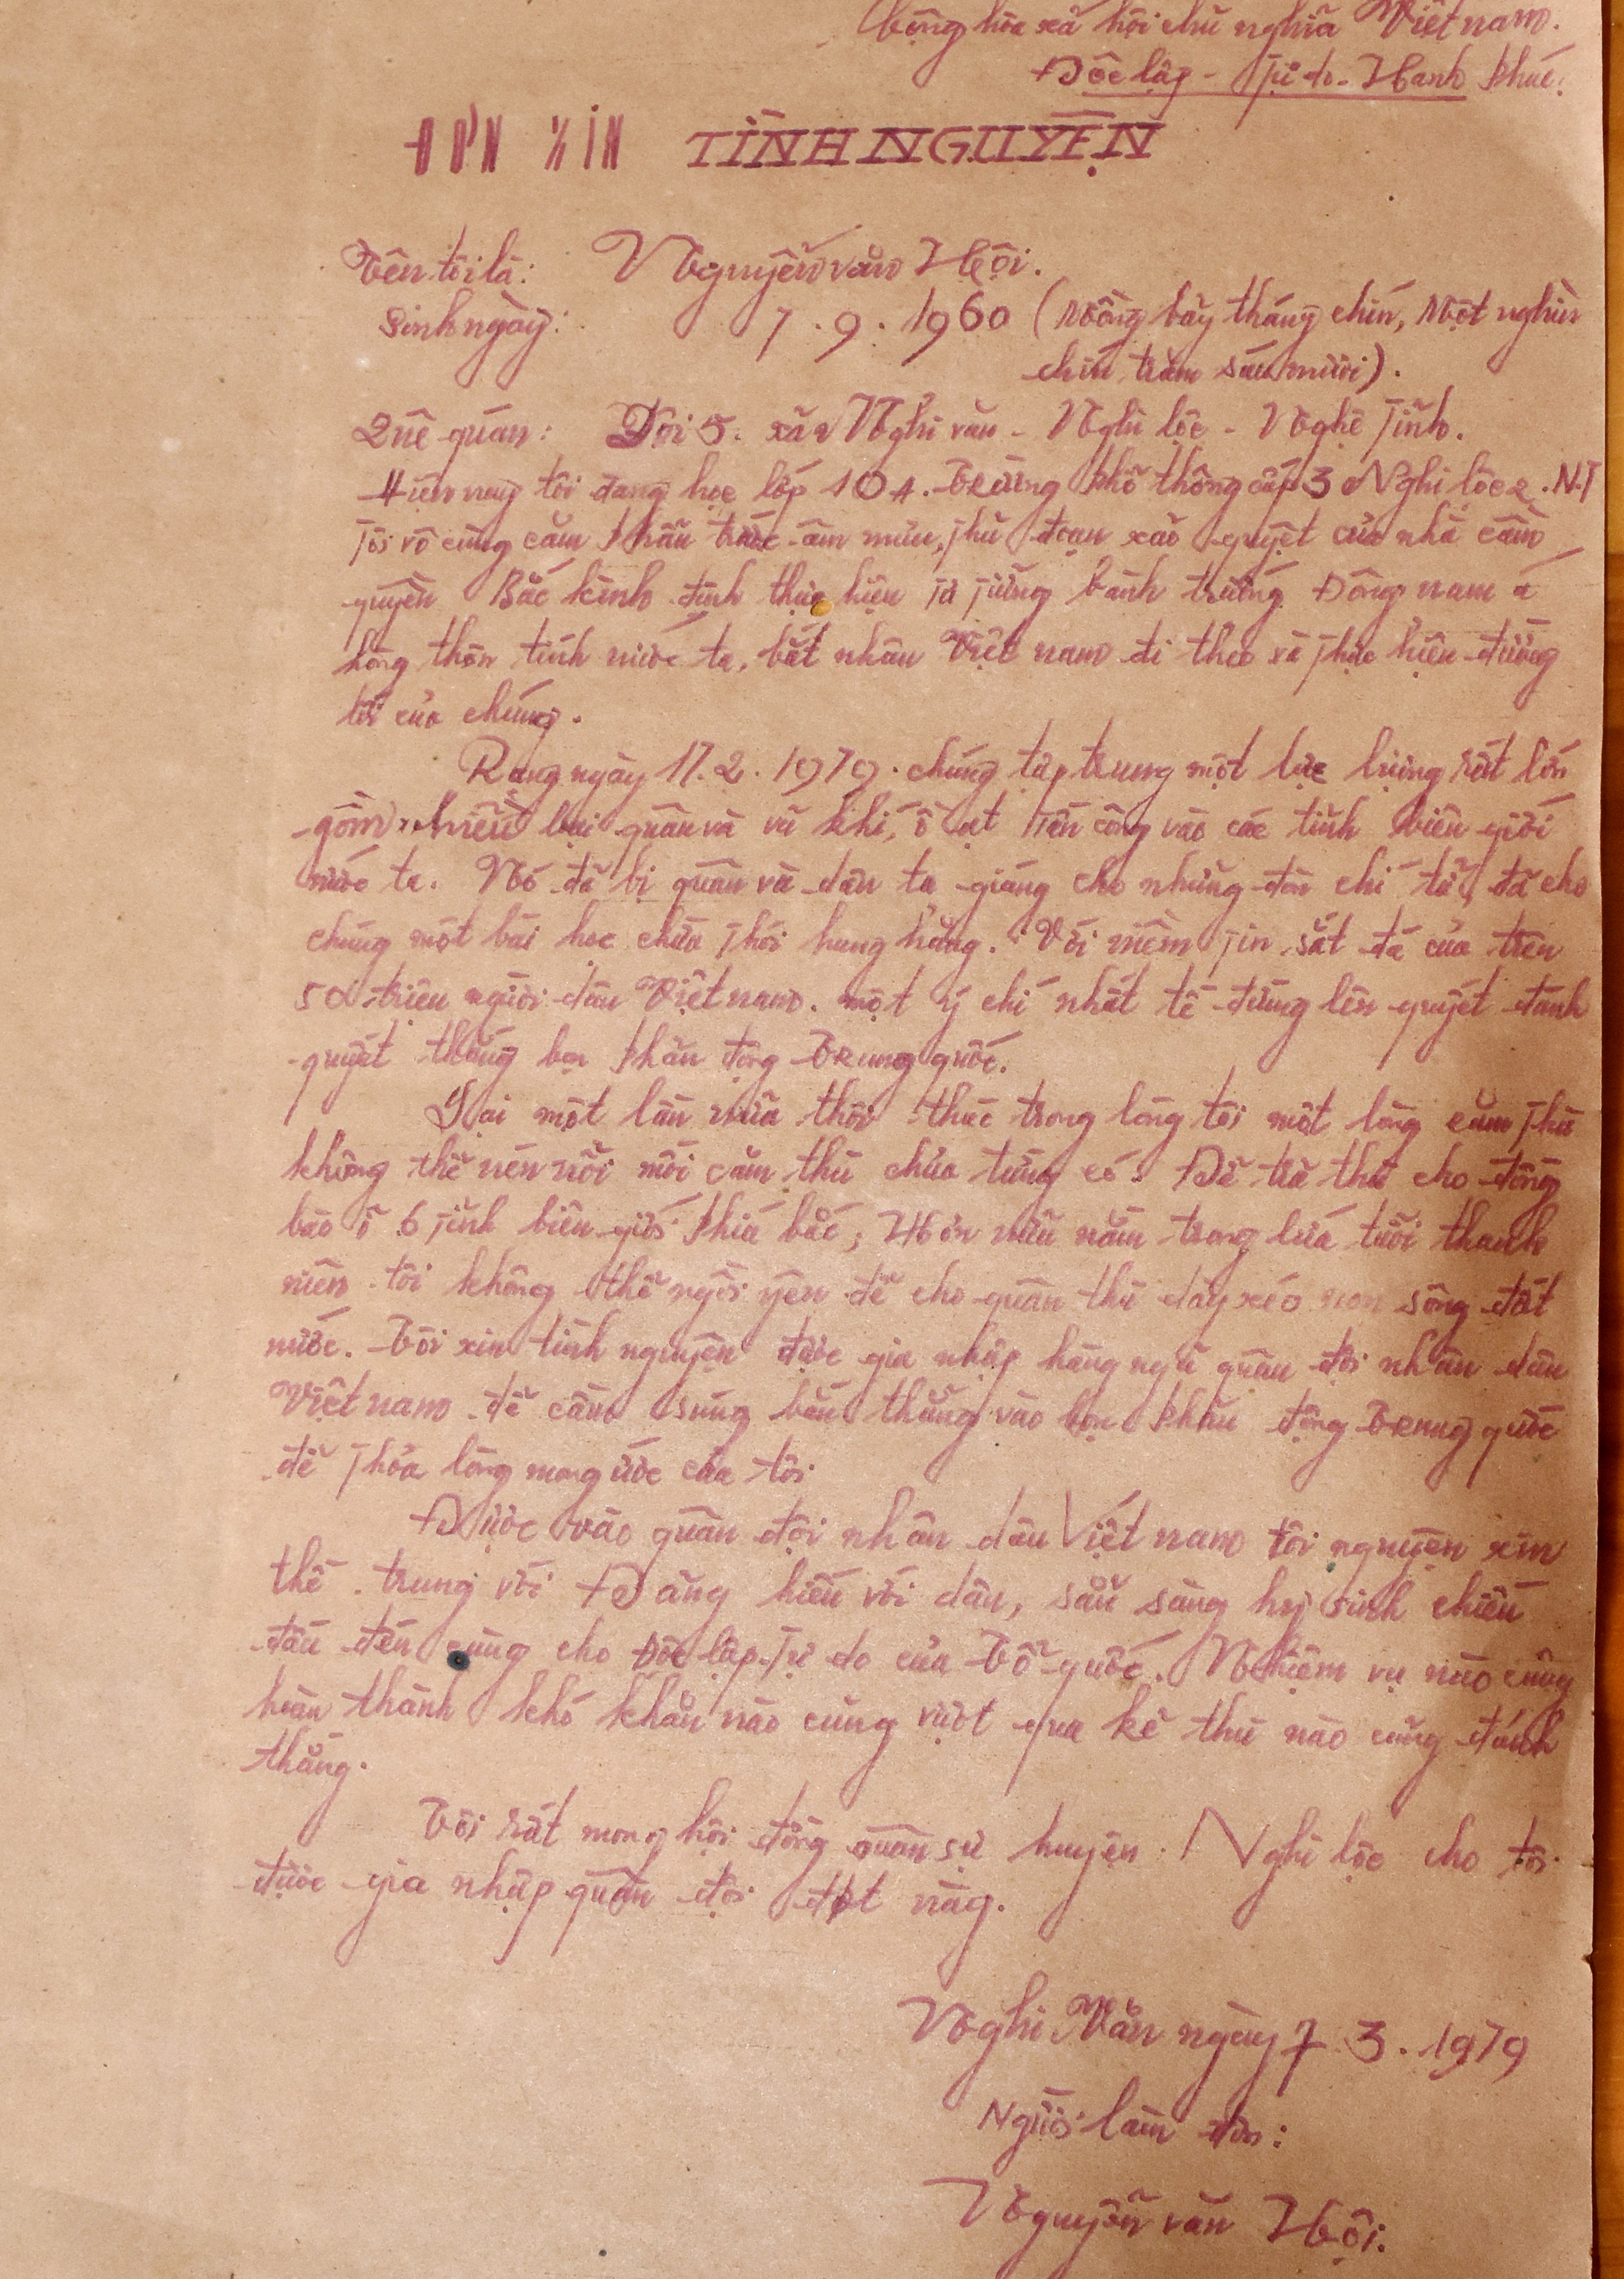 Cộng hòa xã hội chủ nghĩa Việt nam.
Độc lập - Tự do - Hạnh phúc.
ĐƠN XIN TÌNH NGUYỆN
Tên tôi là: Nguyễn văn Hội.
Sinh ngày: 7.9.1960 (Mồng bảy tháng chín, Một nghìn
chín trăm sáu mươi).
Quê quán: Đội 5. xã Nghi văn - Nghi lộc - Nghệ Tĩnh.
Hiện nay tôi đang học lớp 10A. Trường phổ thông cấp 3 Nghi lộc 2. N.T
Tôi vô cùng căm phẫn trước âm mưu, thủ đoạn xảo quyệt của nhà cầm
quyền Bắc kinh định thực hiện tư tưởng bành trướng Đông nam á
hòng thôn tính nước ta, bắt nhân Việt nam đi theo và thực hiện đường
lối của chúng.
Rạng ngày 17.2.1979. chúng tập trung một lực lượng rất lớn
gồm nhiều loại quân và vũ khí, ồ ạt tiến công vào các tỉnh biên giới
nước ta. Nó đã bị quân và dân ta giáng cho những đòn chí tử, đã cho
chúng một bài học chưa thói hung hăng. Với niềm tin sắt đá của trên
50 triệu người dân Việt nam. một ý chí nhất tề đứng lên quyết đánh
quyết thắng bọn phản động Trung quốc.
Lại một lần nữa thôi thúc trong lòng tôi một lòng căm thù
không thể nén nỗi mối căm thù chưa từng có. Để trả thù cho đồng
bào ở 6 tỉnh biên giới phía bắc; Hơn nữa nằm trong lứa tuổi thanh
niên. tôi không thể ngồi yên để cho quân thù dày xéo non sông đất
nước. Tôi xin tình nguyện được gia nhập hàng ngũ quân đội nhân dân
Việt nam để cầm súng bắn thẳng vào bọn phản động Trung quốc
để thỏa lòng mong ước của tôi.
Được vào quân đội nhân dân Việt nam tôi nguyện xin
thề. trung với Đảng hiếu với dân, sẵn sàng hy sinh chiến
đấu đến cùng cho Độc lập. Tự do của Tổ quốc. Nhiệm vụ nào cũng
hoàn thành khó khăn nào cũng vượt qua kẻ thù nào cũng đánh
thắng.
Tôi rất mong hội đồng quân sự huyện Nghi lộc cho tôi
được gia nhập quân đội đợt này.
Nghi Văn ngày 7.3.1979
Người làm đơn:
Nguyễn văn Hội.